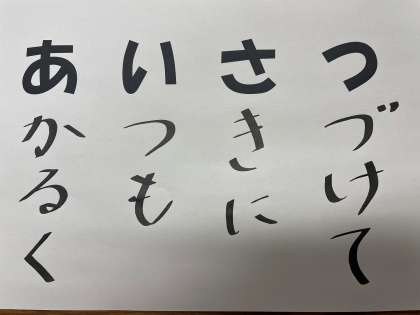 あかるく
いつも
さきに
つづけて